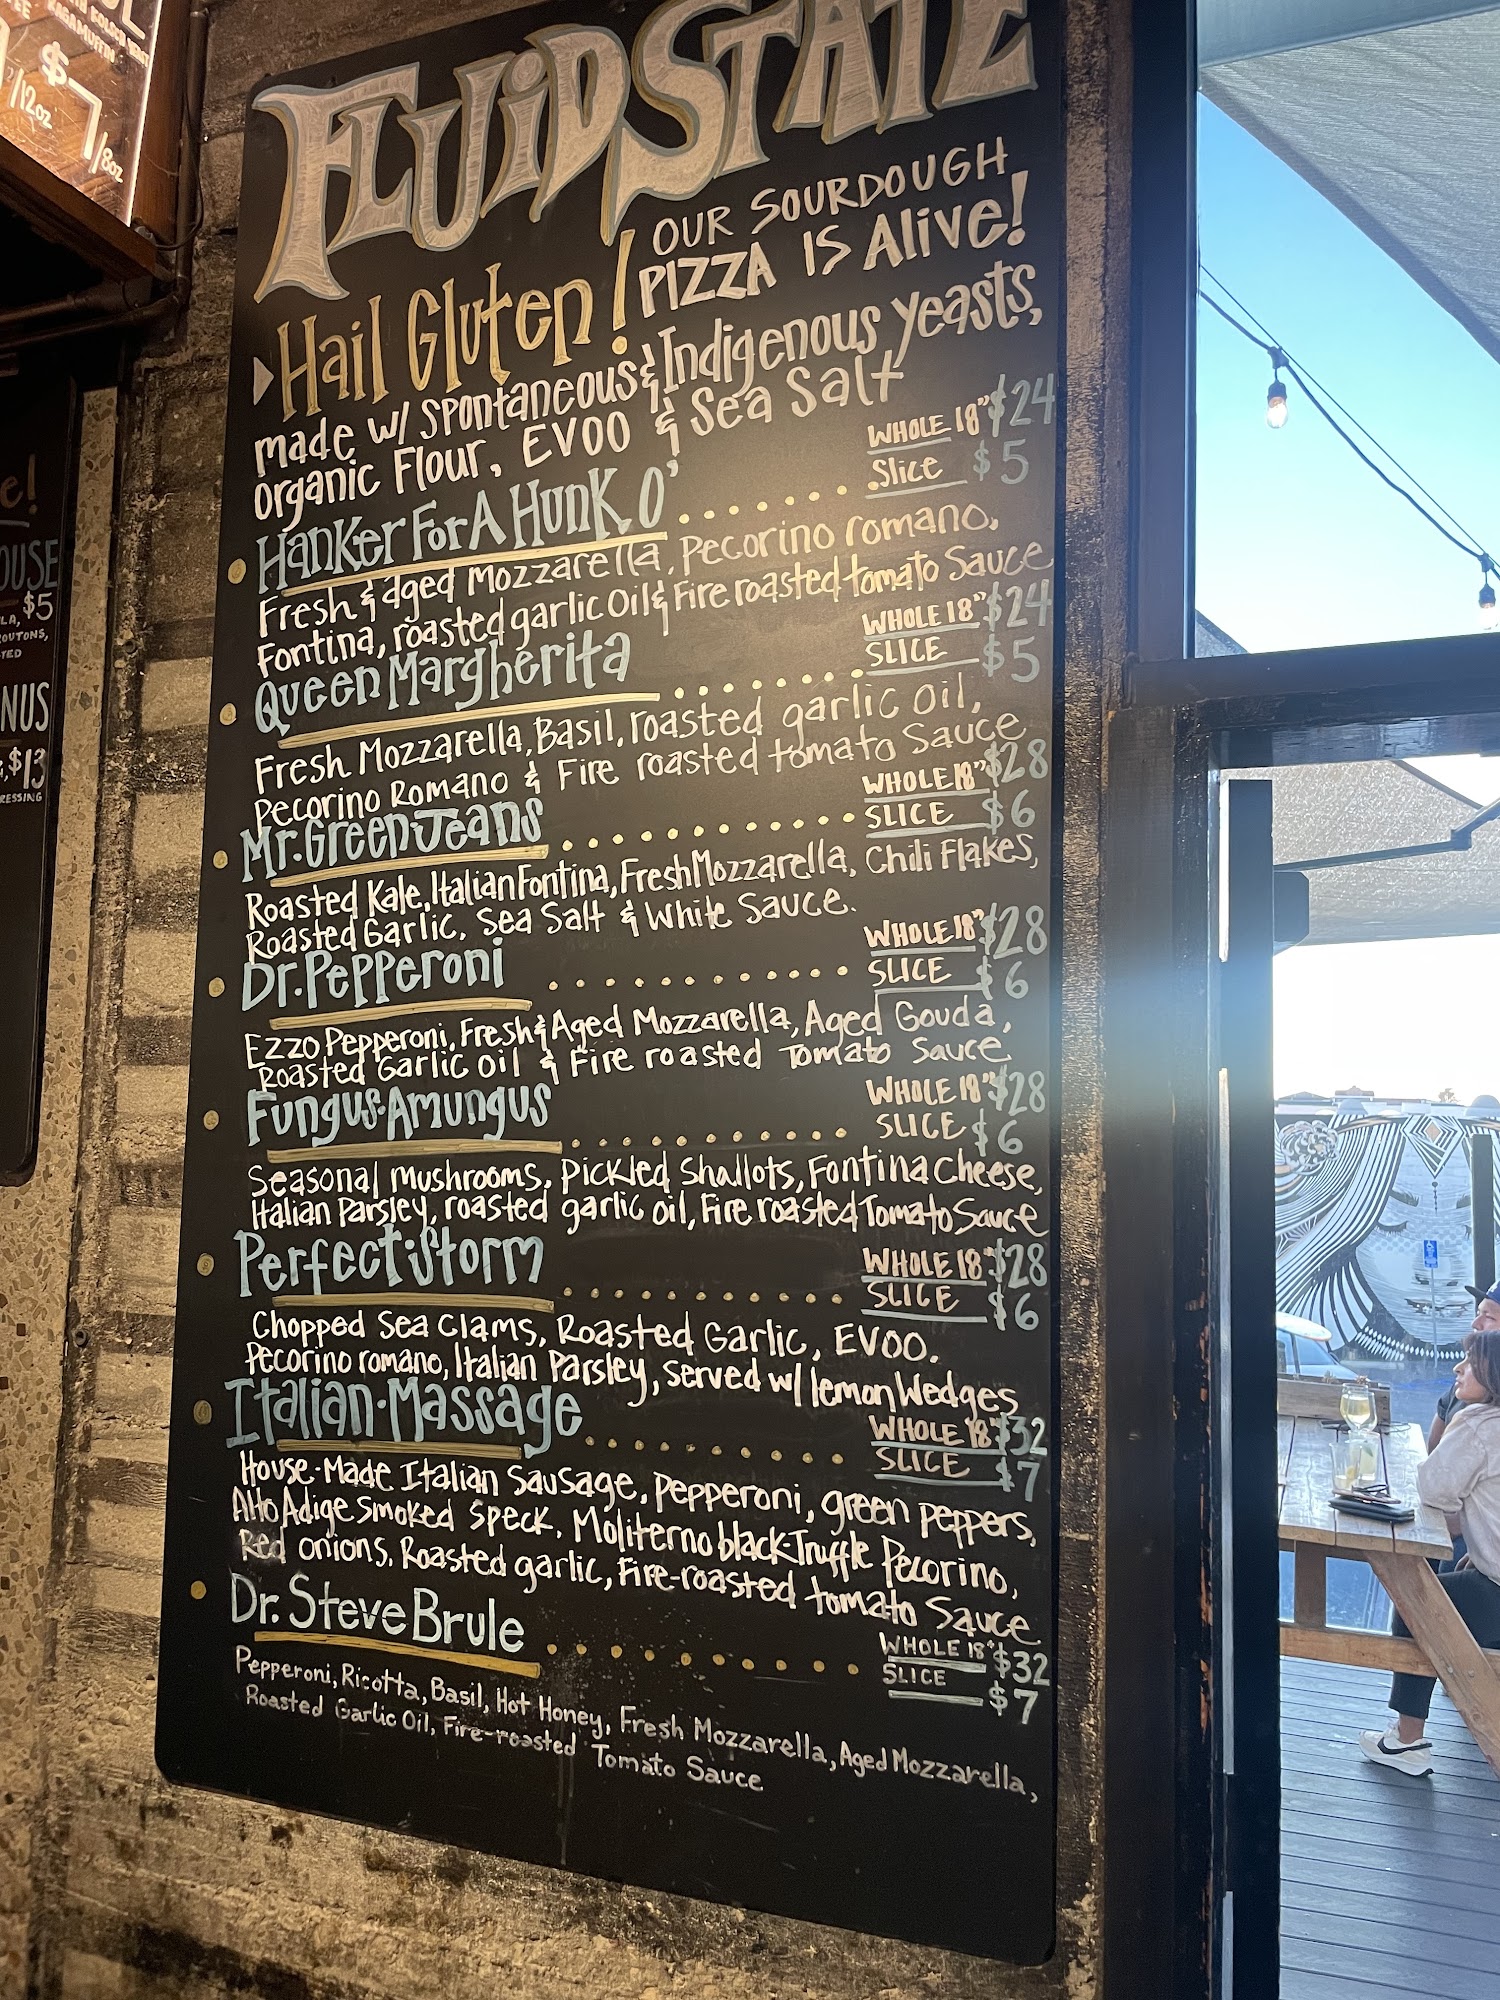 $7/8oz
/12oz
FLUID STATE
Hail Gluten!
OUR SOURDOUGH
PIZZA IS Alive!
made w/ Spontaneous & Indigenous yeasts,
organic Flour, EVOO & Sea Salt
Hanker For A Hunk O'
WHOLE 18" $24
Slice $5
Fresh & aged Mozzarella, Pecorino romano,
Fontina, roasted garlic Oil & Fire roasted tomato Sauce
Queen Margherita
WHOLE 18" $24
SLICE $5
Fresh Mozzarella, Basil, roasted garlic oil,
Pecorino Romano & Fire roasted tomato Sauce
Mr. Green Jeans
WHOLE 18" $28
SLICE $6
Roasted Kale, Italian Fontina, Fresh Mozzarella, Chili Flakes,
Roasted Garlic, Sea Salt & White Sauce.
Dr. Pepperoni
WHOLE 18" $28
SLICE $6
Ezzo Pepperoni, Fresh & Aged Mozzarella, Aged Gouda,
Roasted Garlic Oil & Fire roasted Tomato Sauce
Fungus Amungus
WHOLE 18" $28
SLICE $6
Seasonal mushrooms, Pickled Shallots, Fontina Cheese,
Italian Parsley, roasted garlic oil, Fire roasted Tomato Sauce
Perfect Storm
WHOLE 18" $28
SLICE $6
Chopped Sea Clams, Roasted Garlic, EVOO.
Pecorino romano, Italian Parsley, served w/ lemon Wedges
Italian Massage
WHOLE 18" $32
SLICE $7
House-Made Italian Sausage, Pepperoni, green peppers,
Alto Adige Smoked Speck, Moliterno black Truffle Pecorino,
Red onions, Roasted garlic, Fire-roasted tomato Sauce
Dr. Steve Brule
WHOLE 18" $32
SLICE $7
Pepperoni, Ricotta, Basil, Hot Honey, Fresh Mozzarella, Aged Mozzarella,
Roasted Garlic Oil, Fire-roasted Tomato Sauce
e!
OUSE
$5
LA,
ROUTONS,
TED
NUS
$13
RESSING